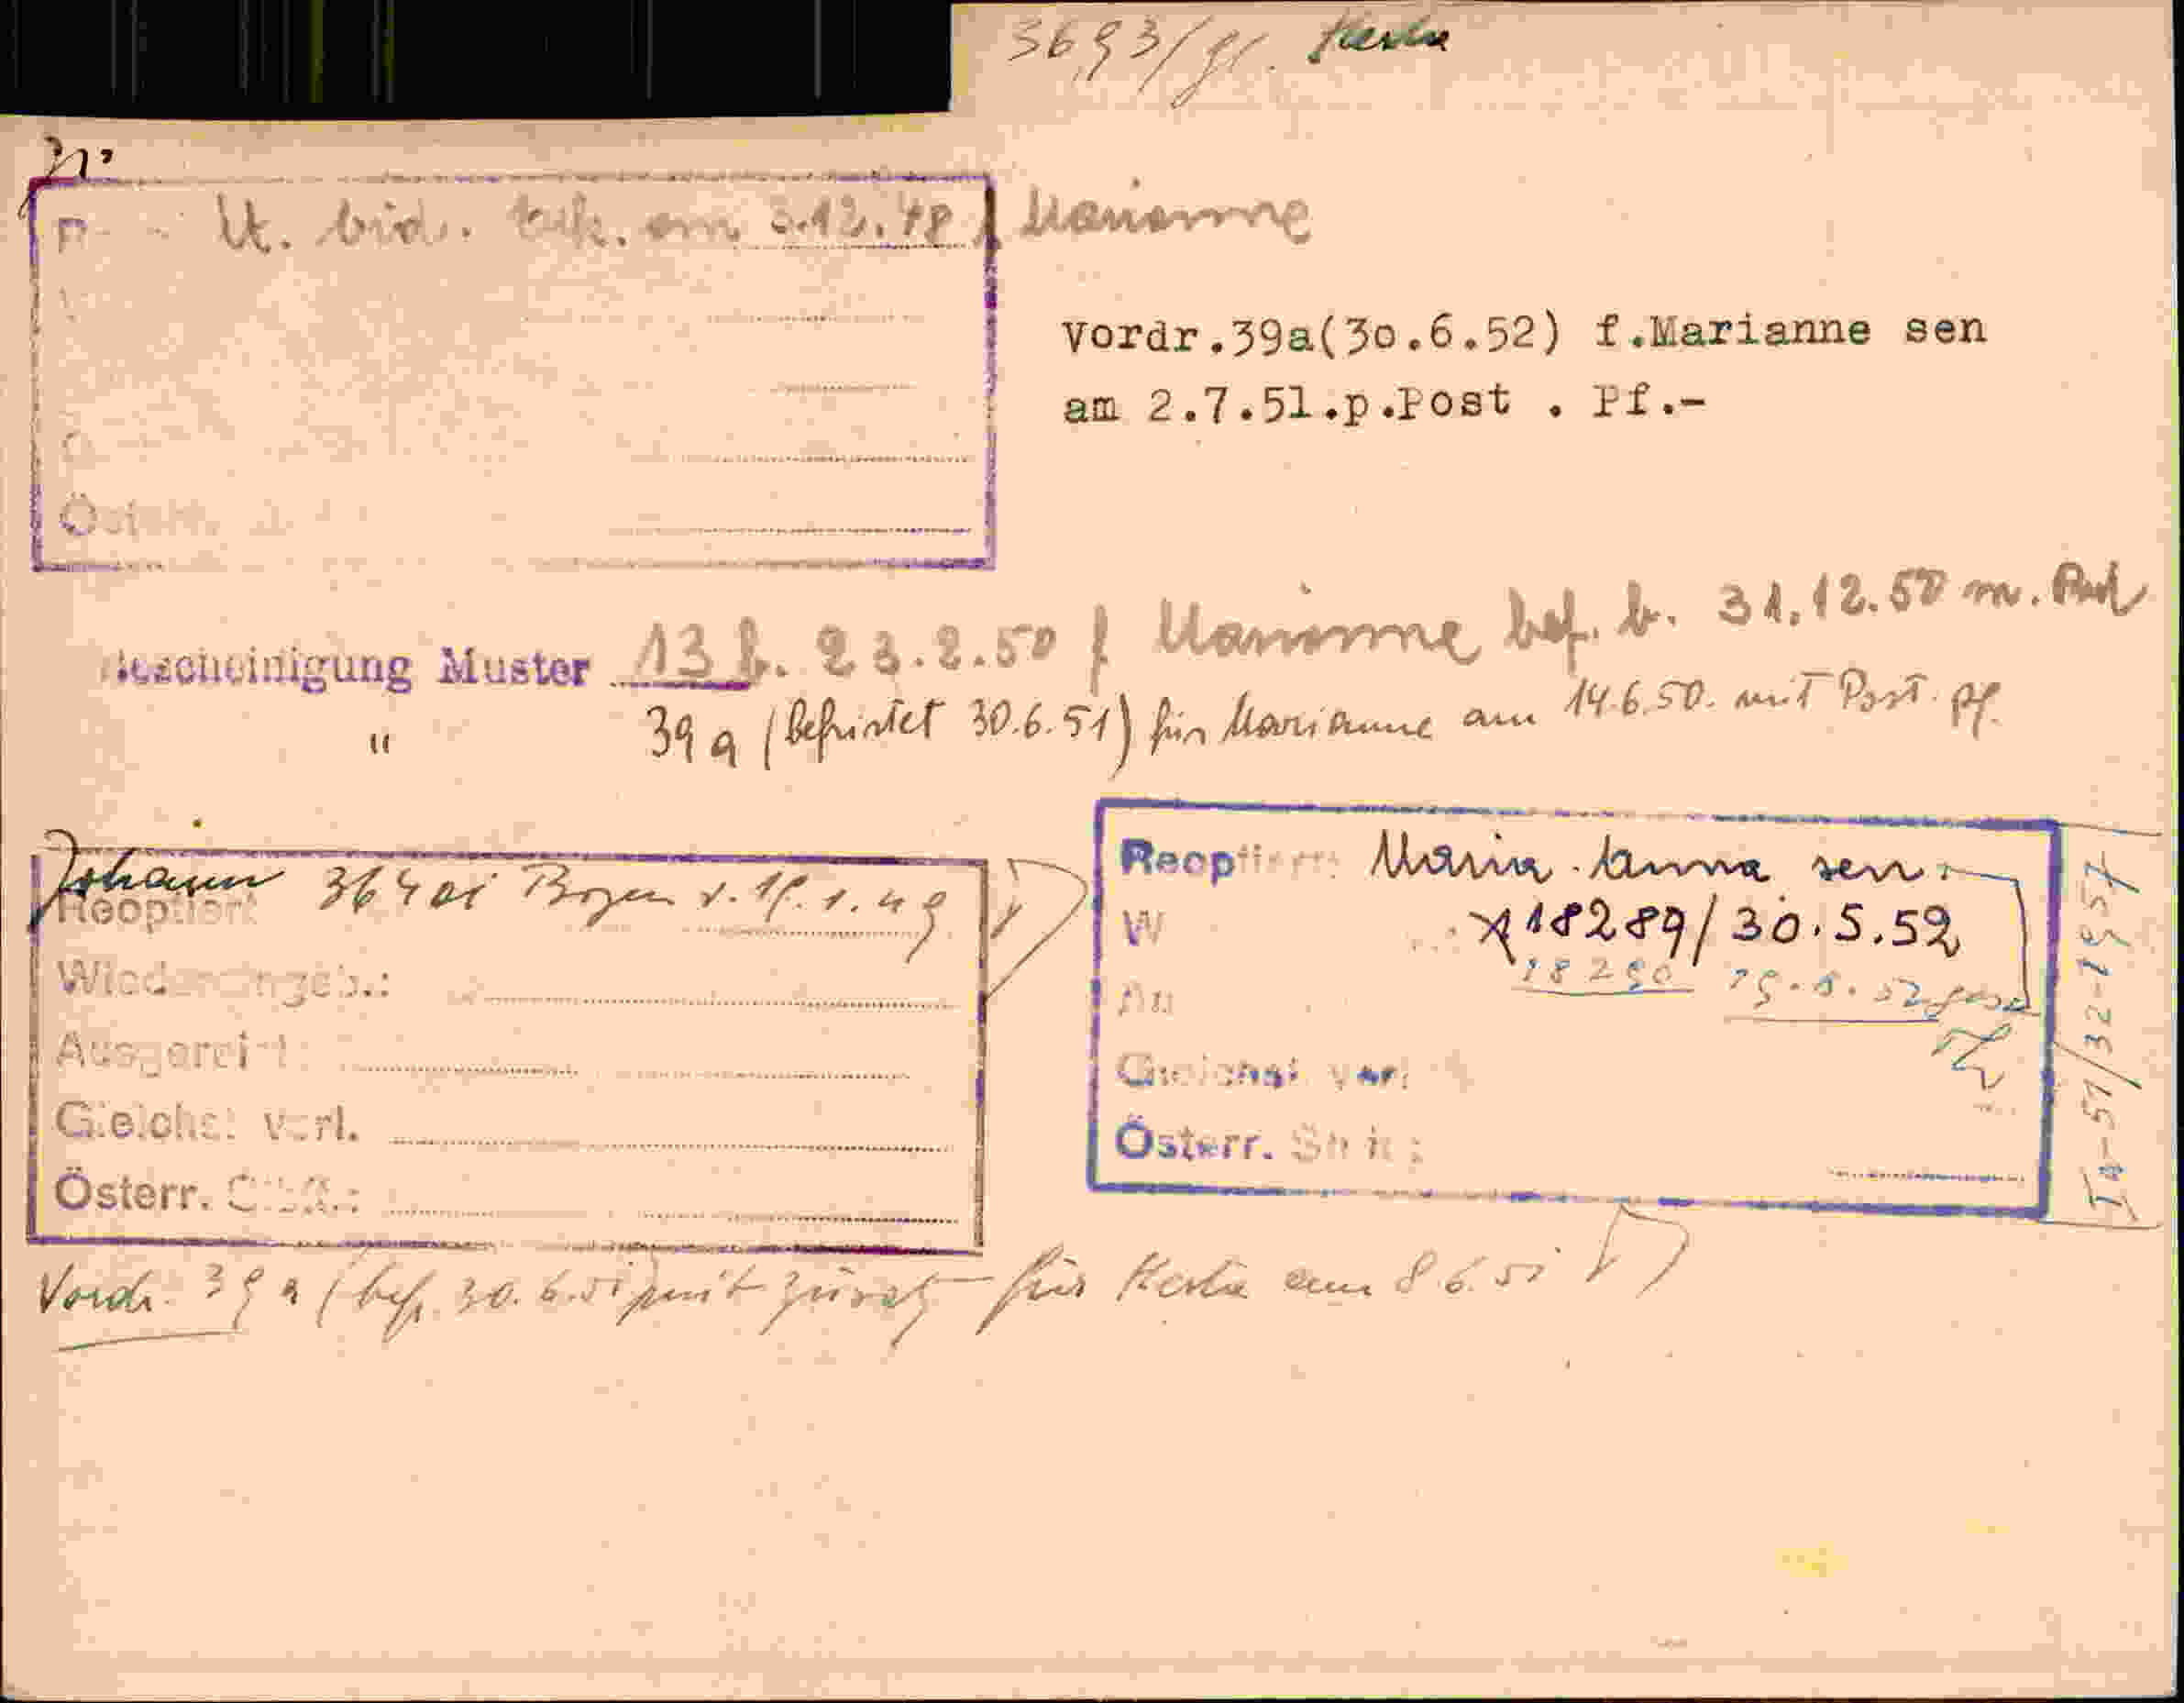 3693/gl. Herta
lt. eid. Erk. am 3.12.48 f Marianne
Vordr.39a(30.6.52) f.Marianne sen
am 2.7.51.p.Post . Pf.-
Österr.
Bescheinigung Muster 13 b. 23.2.50 f Marianne bef. b. 31.12.50 m. Post
" 39a (befristet 30.6.51) für Marianne am 14.6.50. mit Post. pf.
Johann
Reoptiert 36401 Bozen v. 18.1.49
Wiedereingeb.:
Ausgereist:
Gleichst. verl.
Österr. StbK.:
Reoptiert: Maria-Anna sen.
18289/30.5.52
18290 19.6.52
Gleichst. verl.
Österr. StbK.:
51/32-1957
Vordr. 39a (bef. 30.6.51) mit für Herta am 8.6.51